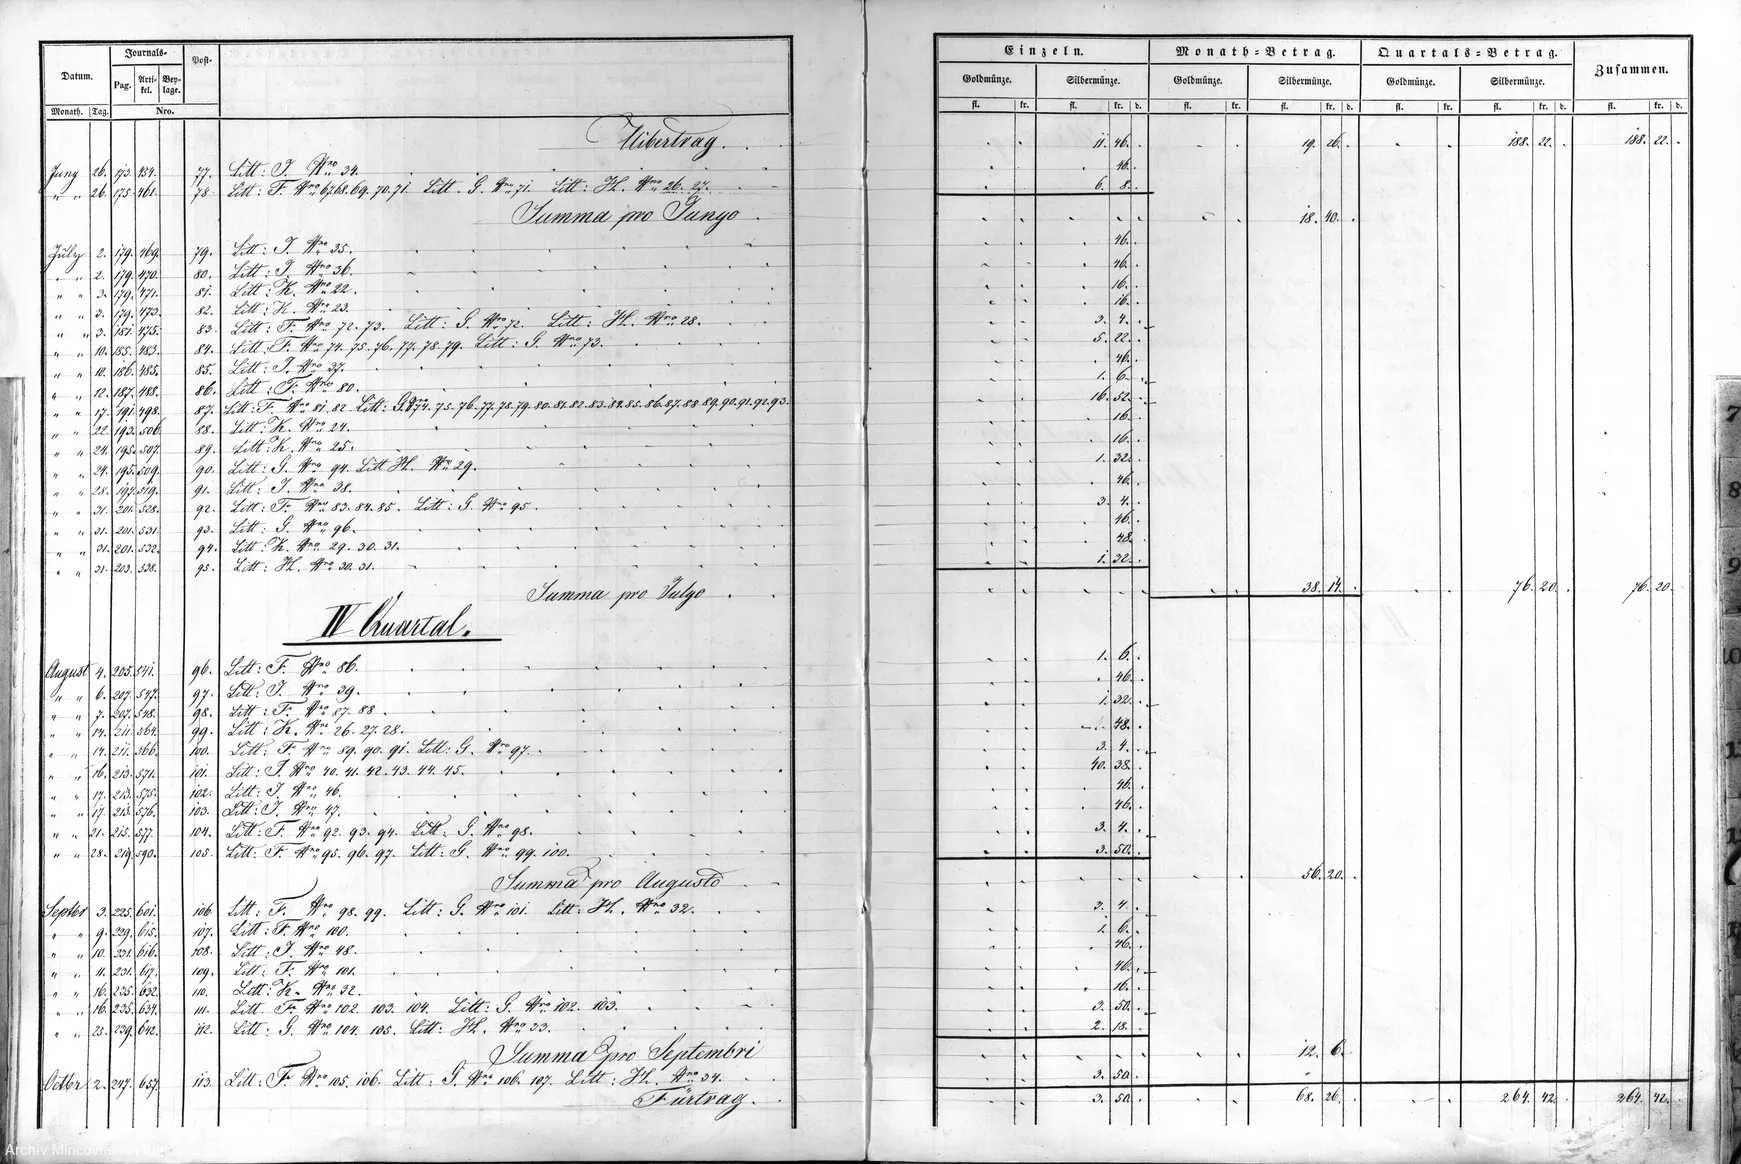 Datum. Journals- Post- Einzeln. Monath-Betrag. Quartals-Betrag. Zusammen.
Pag. Arti-kel. Bey-lage. Goldmünze. Silbermünze. Goldmünze. Silbermünze. Goldmünze. Silbermünze.
Monath. Tag. Nro. fl. kr. fl. kr. d. fl. kr. fl. kr. d. fl. kr. fl. kr. d. fl. kr. d.
Uibertrag. 11. 46. 19. 26. 188. 22. 188. 22.
Juny 26. 173. 454. 77. Litt: J. Nro 34. 46.
" " 26. 175. 461. 78. Litt: F. Nro 67.68.69.70.71 Litt. G. Nro 71. Litt: H. Nro 26. 27. 6. 8.
Summa pro Junyo 18. 40.
July 2. 179. 469. 79. Litt: J. Nro 35. 46.
" " 2. 179. 470. 80. Litt: J. Nro 36. 46.
" " 3. 179. 471. 81. Litt: K. Nro 22. 16.
" " 3. 179. 473. 82. Litt: K. Nro 23. 16.
" " 3. 181. 475. 83. Litt: F. Nro 72. 73. Litt: G. Nro 72. Litt: H. Nro 28. 3. 4.
" " 10. 185. 483. 84. Litt: F. Nro 74. 75. 76. 77. 78. 79. Litt: G. Nro 73. 5. 22.
" " 10. 186. 485. 85. Litt: J. Nro 37. 46.
" " 12. 187. 488. 86. Litt: F. Nro 80. 1. 6.
" " 17. 191. 498. 87. Litt: F. Nro 81. 82. Litt: G. Nro 74. 75. 76. 77. 78. 79. 80. 81. 82. 83. 84. 85. 86. 87. 88. 89. 90. 91. 92. 93. 16. 52.
" " 22. 193. 506. 88. Litt: K. Nro 24. 16.
" " 24. 195. 507. 89. Litt: K. Nro 25. 16.
" " 24. 195. 509. 90. Litt: G. Nro 94. Litt H. Nro 29. 1. 32.
" " 28. 197. 519. 91. Litt: J. Nro 38. 46.
" " 31. 201. 528. 92. Litt: F. Nro 83. 84. 85. Litt: G. Nro 95. 3. 4.
" " 31. 201. 531. 93. Litt: G. Nro 96. 46.
" " 31. 201. 532. 94. Litt: K. Nro 29. 30. 31. 48.
" " 31. 203. 538. 95. Litt: H. Nro 30. 31. 1. 32.
Summa pro Julyo 38. 14. 76. 20. 76. 20.
IV Quartal.
August 4. 205. 541. 96. Litt: F. Nro 86. 1. 6.
" " 6. 207. 547. 97. Litt: J. Nro 39. 46.
" " 7. 207. 548. 98. Litt: F. Nro 87. 88. 1. 32.
" " 14. 211. 564. 99. Litt: K. Nro 26. 27. 28. 48.
" " 14. 211. 566. 100. Litt: F. Nro 89. 90. 91. Litt: G. Nro 97. 3. 4.
" " 16. 213. 571. 101. Litt: J. Nro 40. 41. 42. 43. 44. 45. 40. 38.
" " 17. 213. 575. 102. Litt: J. Nro 46. 46.
" " 17. 213. 576. 103. Litt: J. Nro 47. 46.
" " 21. 215. 577. 104. Litt: F. Nro 92. 93. 94. Litt: G. Nro 98. 3. 4.
" " 28. 219. 590. 105. Litt: F. Nro 95. 96. 97. Litt: G. Nro 99. 100. 3. 50.
Summa pro Augusto 56. 20.
Septbr 3. 225. 601. 106. Litt: F. Nro 98. 99. Litt: G. Nro 101. Litt: H. Nro 32. 3. 4.
" " 9. 229. 615. 107. Litt: F. Nro 100. 1. 6.
" " 10. 231. 616. 108. Litt: J. Nro 48. 46.
" " 11. 231. 617. 109. Litt: F. Nro 101. 46.
" " 16. 235. 632. 110. Litt: K. Nro 32. 16.
" " 16. 235. 634. 111. Litt. F. Nro 102. 103. 104. Litt: G. Nro 102. 103. 3. 50.
" " 23. 239. 642. 112. Litt: G. Nro 104. 105. Litt: H. Nro 33. 2. 18.
Summa pro Septembri 12. 6.
Octbr 2. 247. 657. 113. Litt: F. Nro 105. 106. Litt: G. Nro 106. 107. Litt: H. Nro 34. 3. 50.
Fürtrag. 3. 50. 68. 26. 264. 42. 264. 42.
7
8
9
10